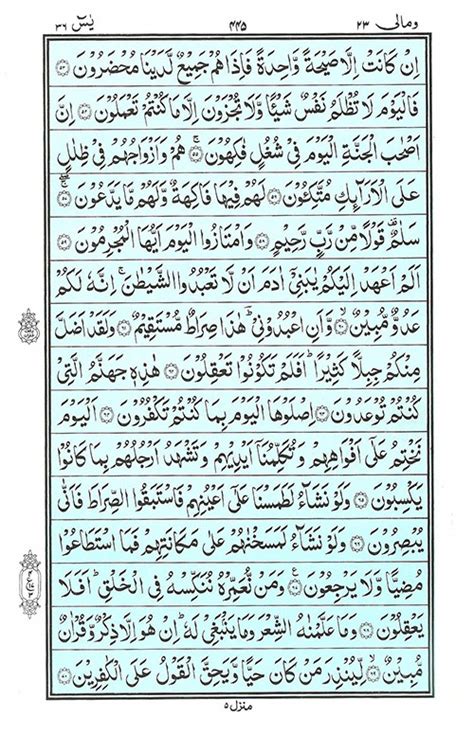 ومالی ۲۳
۴۴۵
یٰسٓ ۳۶
اِنۡ كَانَتۡ اِلَّا صَيۡحَةً وَّاحِدَةً فَاِذَا هُمۡ جَمِيۡعٌ لَّدَيۡنَا مُحۡضَرُوۡنَ ﴿۵۳﴾
فَالۡيَوۡمَ لَا تُظۡلَمُ نَفۡسٌ شَيۡــًٔا وَّلَا تُجۡزَوۡنَ اِلَّا مَا كُنۡتُمۡ تَعۡمَلُوۡنَ ﴿۵۴﴾ اِنَّ
اَصۡحٰبَ الۡجَنَّةِ الۡيَوۡمَ فِىۡ شُغُلٍ فٰكِهُوۡنَ ﴿۵۵﴾ هُمۡ وَاَزۡوَاجُهُمۡ فِىۡ ظِلٰلٍ
عَلَى الۡاَرَآٮِٕكِ مُتَّكِـُٔوۡنَ ﴿۵۶﴾ لَهُمۡ فِيۡهَا فَاكِهَةٌ وَّلَهُمۡ مَّا يَدَّعُوۡنَ ﴿۵۷﴾
سَلٰمٌ قَوۡلًا مِّنۡ رَّبٍّ رَّحِيۡمٍ ﴿۵۸﴾ وَامۡتَازُوا الۡيَوۡمَ اَيُّهَا الۡمُجۡرِمُوۡنَ ﴿۵۹﴾
اَلَمۡ اَعۡهَدۡ اِلَيۡكُمۡ يٰبَنِىۡۤ اٰدَمَ اَنۡ لَّا تَعۡبُدُوا الشَّيۡطٰنَۚ اِنَّهٗ لَـكُمۡ
عَدُوٌّ مُّبِيۡنٌ ﴿۶۰﴾ وَّاَنِ اعۡبُدُوۡنِىۡ ؕ هٰذَا صِرَاطٌ مُّسۡتَقِيۡمٌ ﴿۶۱﴾ وَلَقَدۡ اَضَلَّ
مِنۡكُمۡ جِبِلًّا كَثِيۡرًا ؕ اَفَلَمۡ تَكُوۡنُوۡا تَعۡقِلُوۡنَ ﴿۶۲﴾ هٰذِهٖ جَهَنَّمُ الَّتِىۡ
كُنۡتُمۡ تُوۡعَدُوۡنَ ﴿۶۳﴾ اِصۡلَوۡهَا الۡيَوۡمَ بِمَا كُنۡتُمۡ تَكۡفُرُوۡنَ ﴿۶۴﴾ اَلۡيَوۡمَ
نَخۡتِمُ عَلٰٓى اَفۡوَاهِهِمۡ وَتُكَلِّمُنَاۤ اَيۡدِيۡهِمۡ وَتَشۡهَدُ اَرۡجُلُهُمۡ بِمَا كَانُوۡا
يَكۡسِبُوۡنَ ﴿۶۵﴾ وَلَوۡ نَشَآءُ لَـطَمَسۡنَا عَلٰٓى اَعۡيُنِهِمۡ فَاسۡتَبَقُوا الصِّرَاطَ فَاَنّٰى
يُبۡصِرُوۡنَ ﴿۶۶﴾ وَلَوۡ نَشَآءُ لَمَسَخۡنٰهُمۡ عَلٰى مَكَانَتِهِمۡ فَمَا اسۡتَطَاعُوۡا
مُضِيًّا وَّلَا يَرۡجِعُوۡنَ ﴿۶۷﴾ وَمَنۡ نُّعَمِّرۡهُ نُـنَكِّسۡهُ فِى الۡخَـلۡقِ ؕ اَفَلَا
يَعۡقِلُوۡنَ ﴿۶۸﴾ وَمَا عَلَّمۡنٰهُ الشِّعۡرَ وَمَا يَنۡۢبَغِىۡ لَهٗ ؕ اِنۡ هُوَ اِلَّا ذِكۡرٌ وَّقُرۡاٰنٌ
مُّبِيۡنٌ ﴿۶۹﴾ لِّيُنۡذِرَ مَنۡ كَانَ حَيًّا وَّيَحِقَّ الۡقَوۡلُ عَلَى الۡكٰفِرِيۡنَ ﴿۷۰﴾
منزل ۵